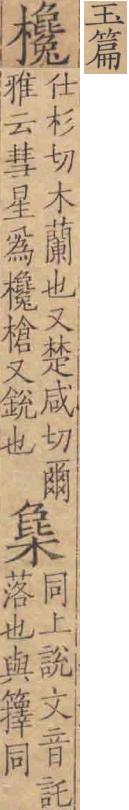 玉篇
欃
仕杉切木蘭也又楚咸切爾
雅云彗星爲欃槍又銳也
㲋
同上說文音託
落也與籜同